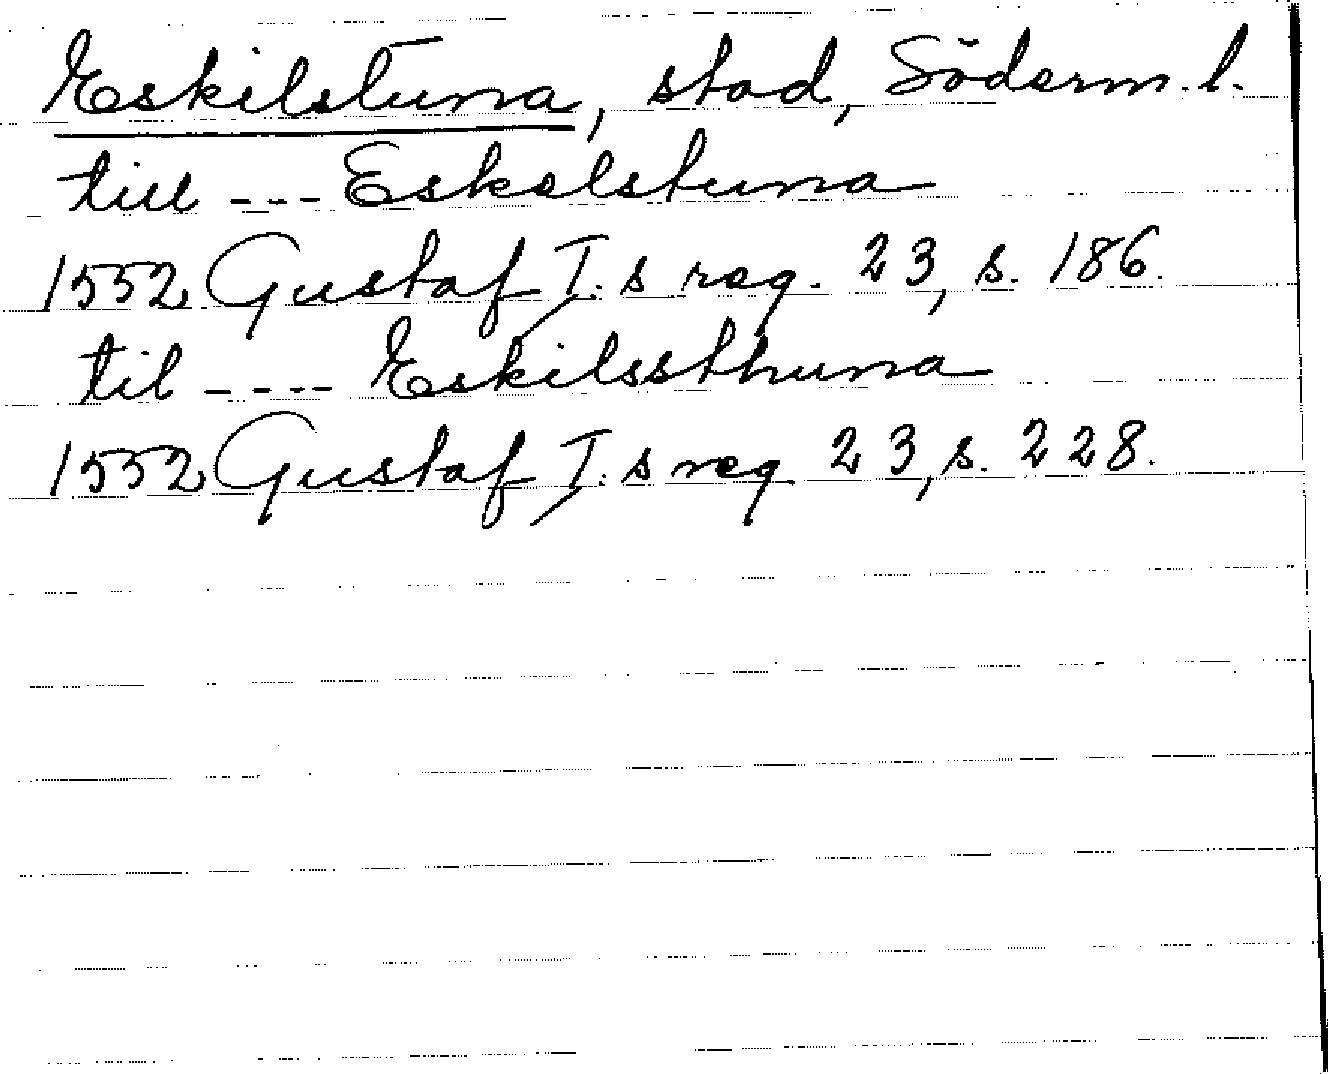 Eskilstuna, stad, Söderm. l.
till --- Eskelstuna
1552 Gustaf I:s reg. 23, s. 186.
til ---- Eskilssthuna
1552 Gustaf I:s reg 23, s. 228.